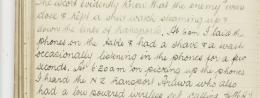 The escort evidently knew that the enemy was
close & kept a sharp watch steaming up &
down the lines of transports. At 6am I laid the
phones on the table & had a shave & a wash
occasionally listening in the phones for a few
seconds. At 6.20am on picking up the phones
I heard the N.Z. transport Arawa who also
had a low powered wireless set calling